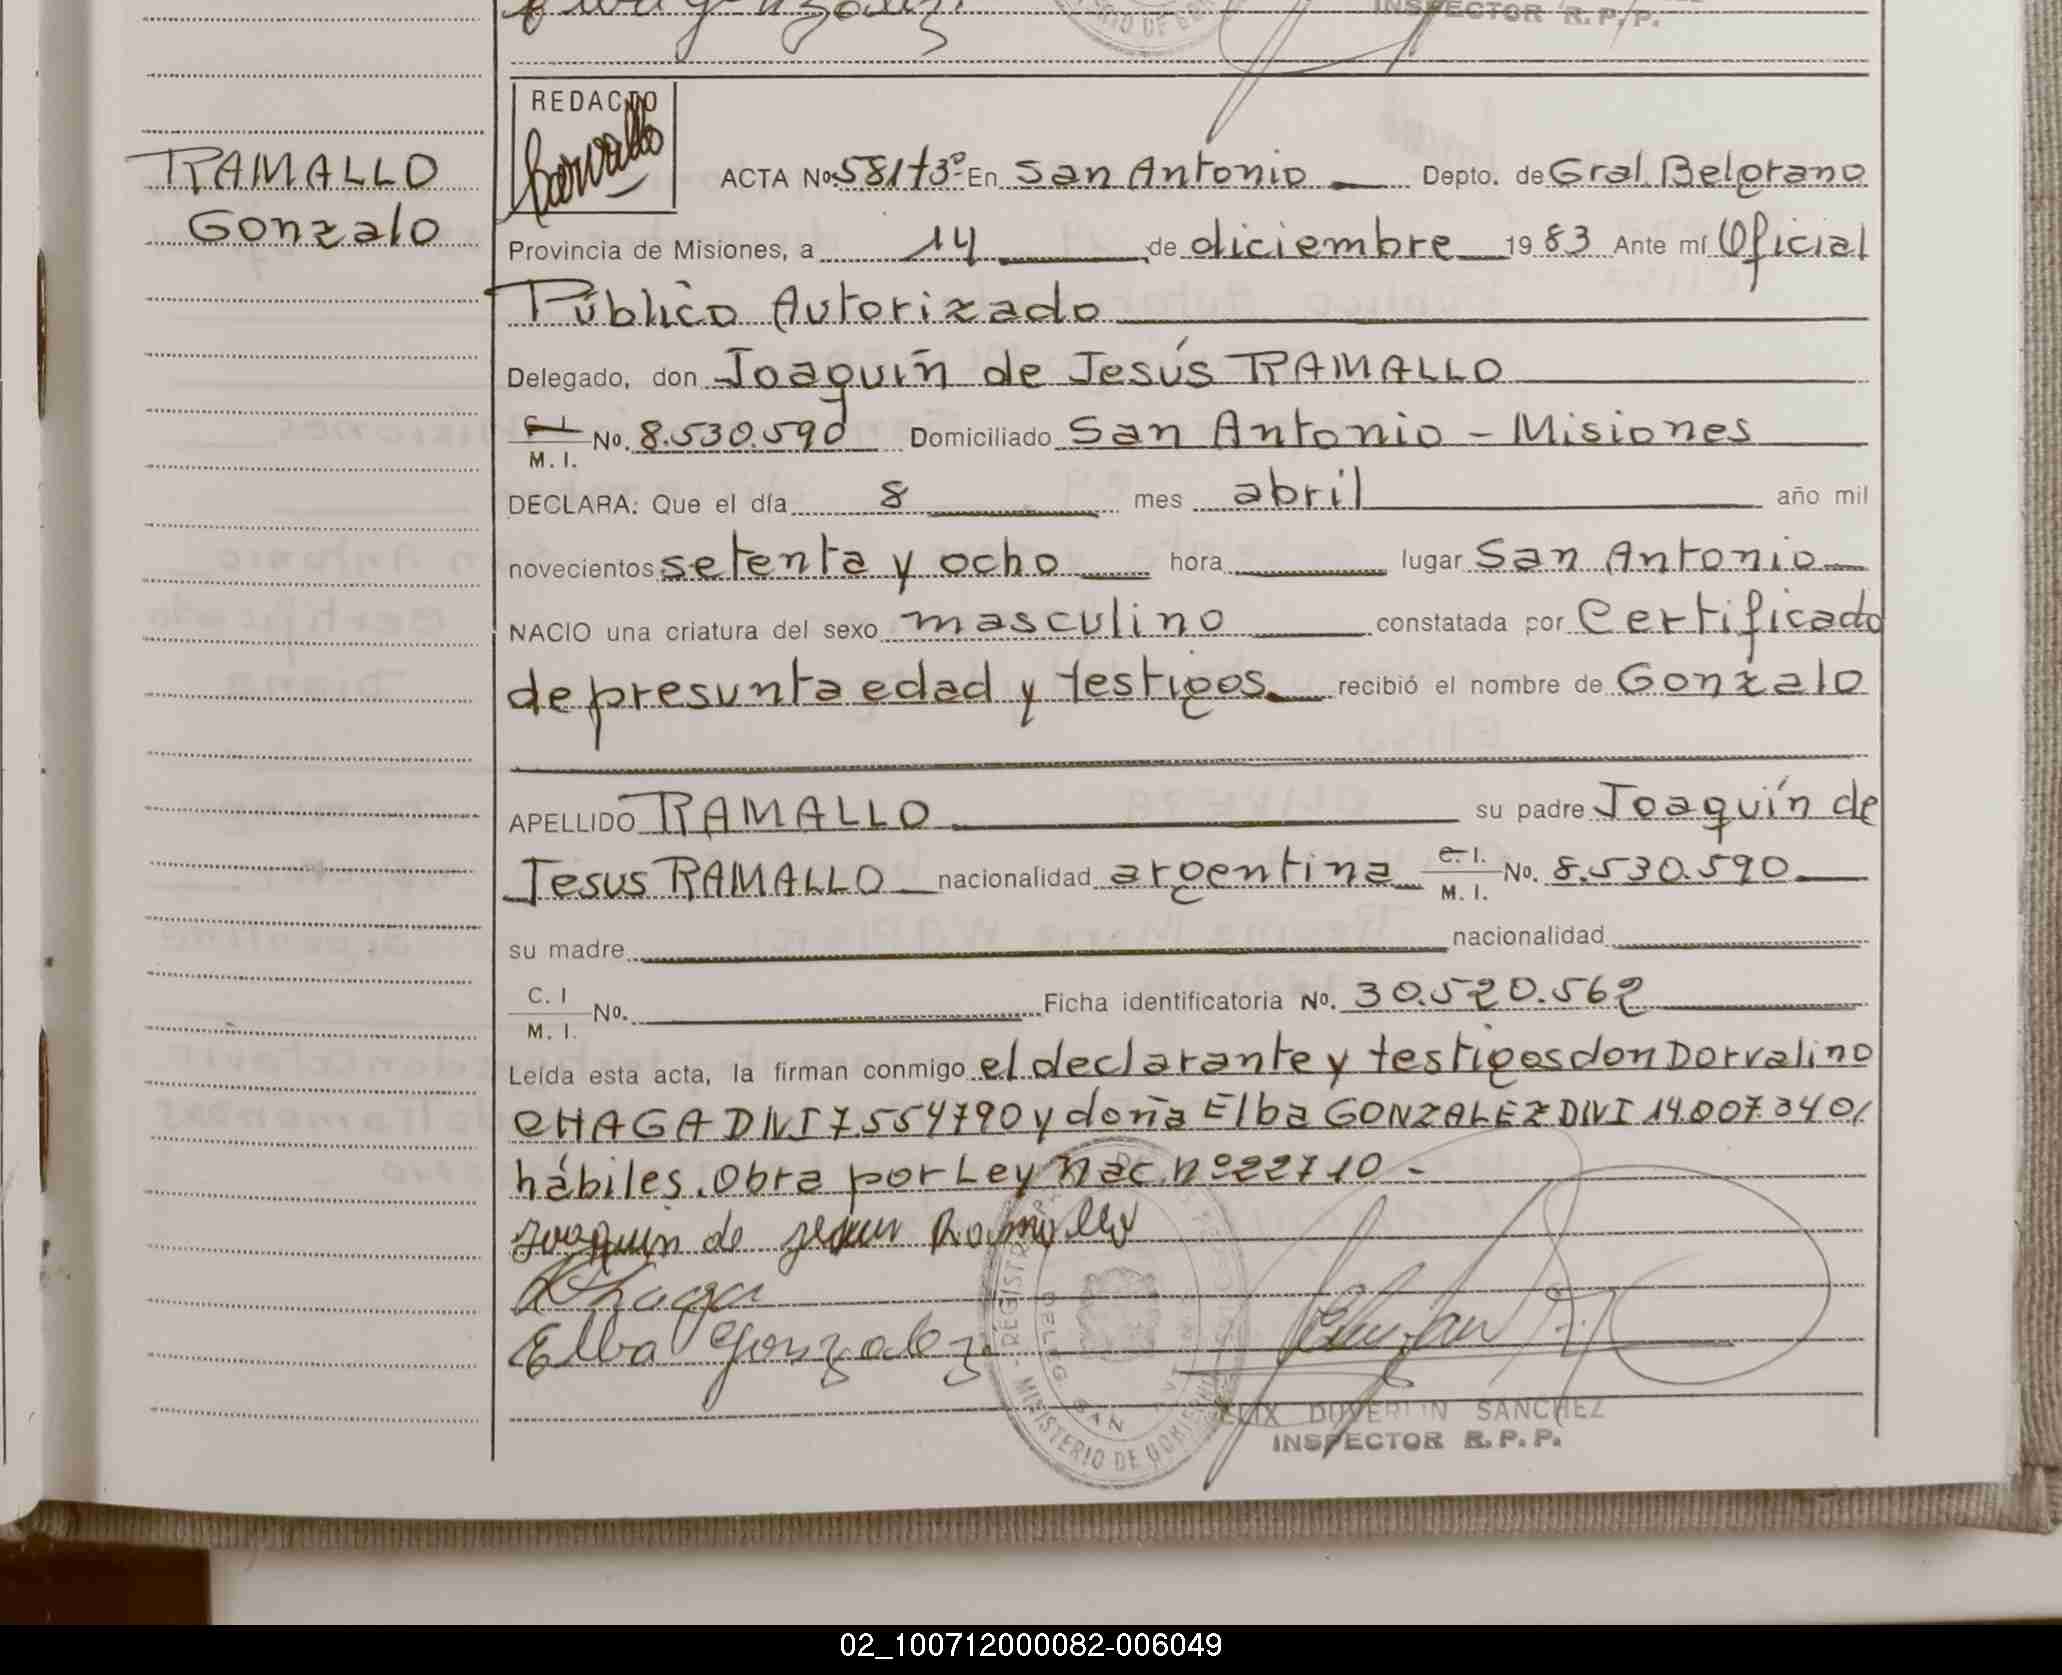 Elba Gonzalez
INSPECTOR R.P.P.
REDACTO
RAMALLO
Gonzalo
ACTA No. 581 t3º En San Antonio Depto. de Gral. Belgrano
Provincia de Misiones, a 14 de diciembre 1983 Ante mí Oficial
Público Autorizado
Delegado, don Joaquín de Jesús RAMALLO
C. I. M. I. No. 8.530.590 Domiciliado San Antonio - Misiones
DECLARA: Que el día 8 mes abril año mil
novecientos setenta y ocho hora lugar San Antonio
NACIO una criatura del sexo masculino constatada por Certificado
de presunta edad y testigos recibió el nombre de Gonzalo
APELLIDO RAMALLO su padre Joaquín de
Jesus RAMALLO nacionalidad argentina C. I. M. I. No. 8.530.590
su madre nacionalidad
C. I M. I. No. Ficha identificatoria No. 30.520.562
Leída esta acta, la firman conmigo el declarante y testigos don Dorvalino
CHAGA DNI 7.554790 y doña Elba GONZALEZ DNI 14.007.340/
hábiles. Obra por Ley Nac. nº 22710 -
Joaquin de Jesus Ramallo
Chaga
Elba Gonzalez
FELIX DUVERLIN SANCHEZ
INSPECTOR R.P.P.
02_100712000082-006049